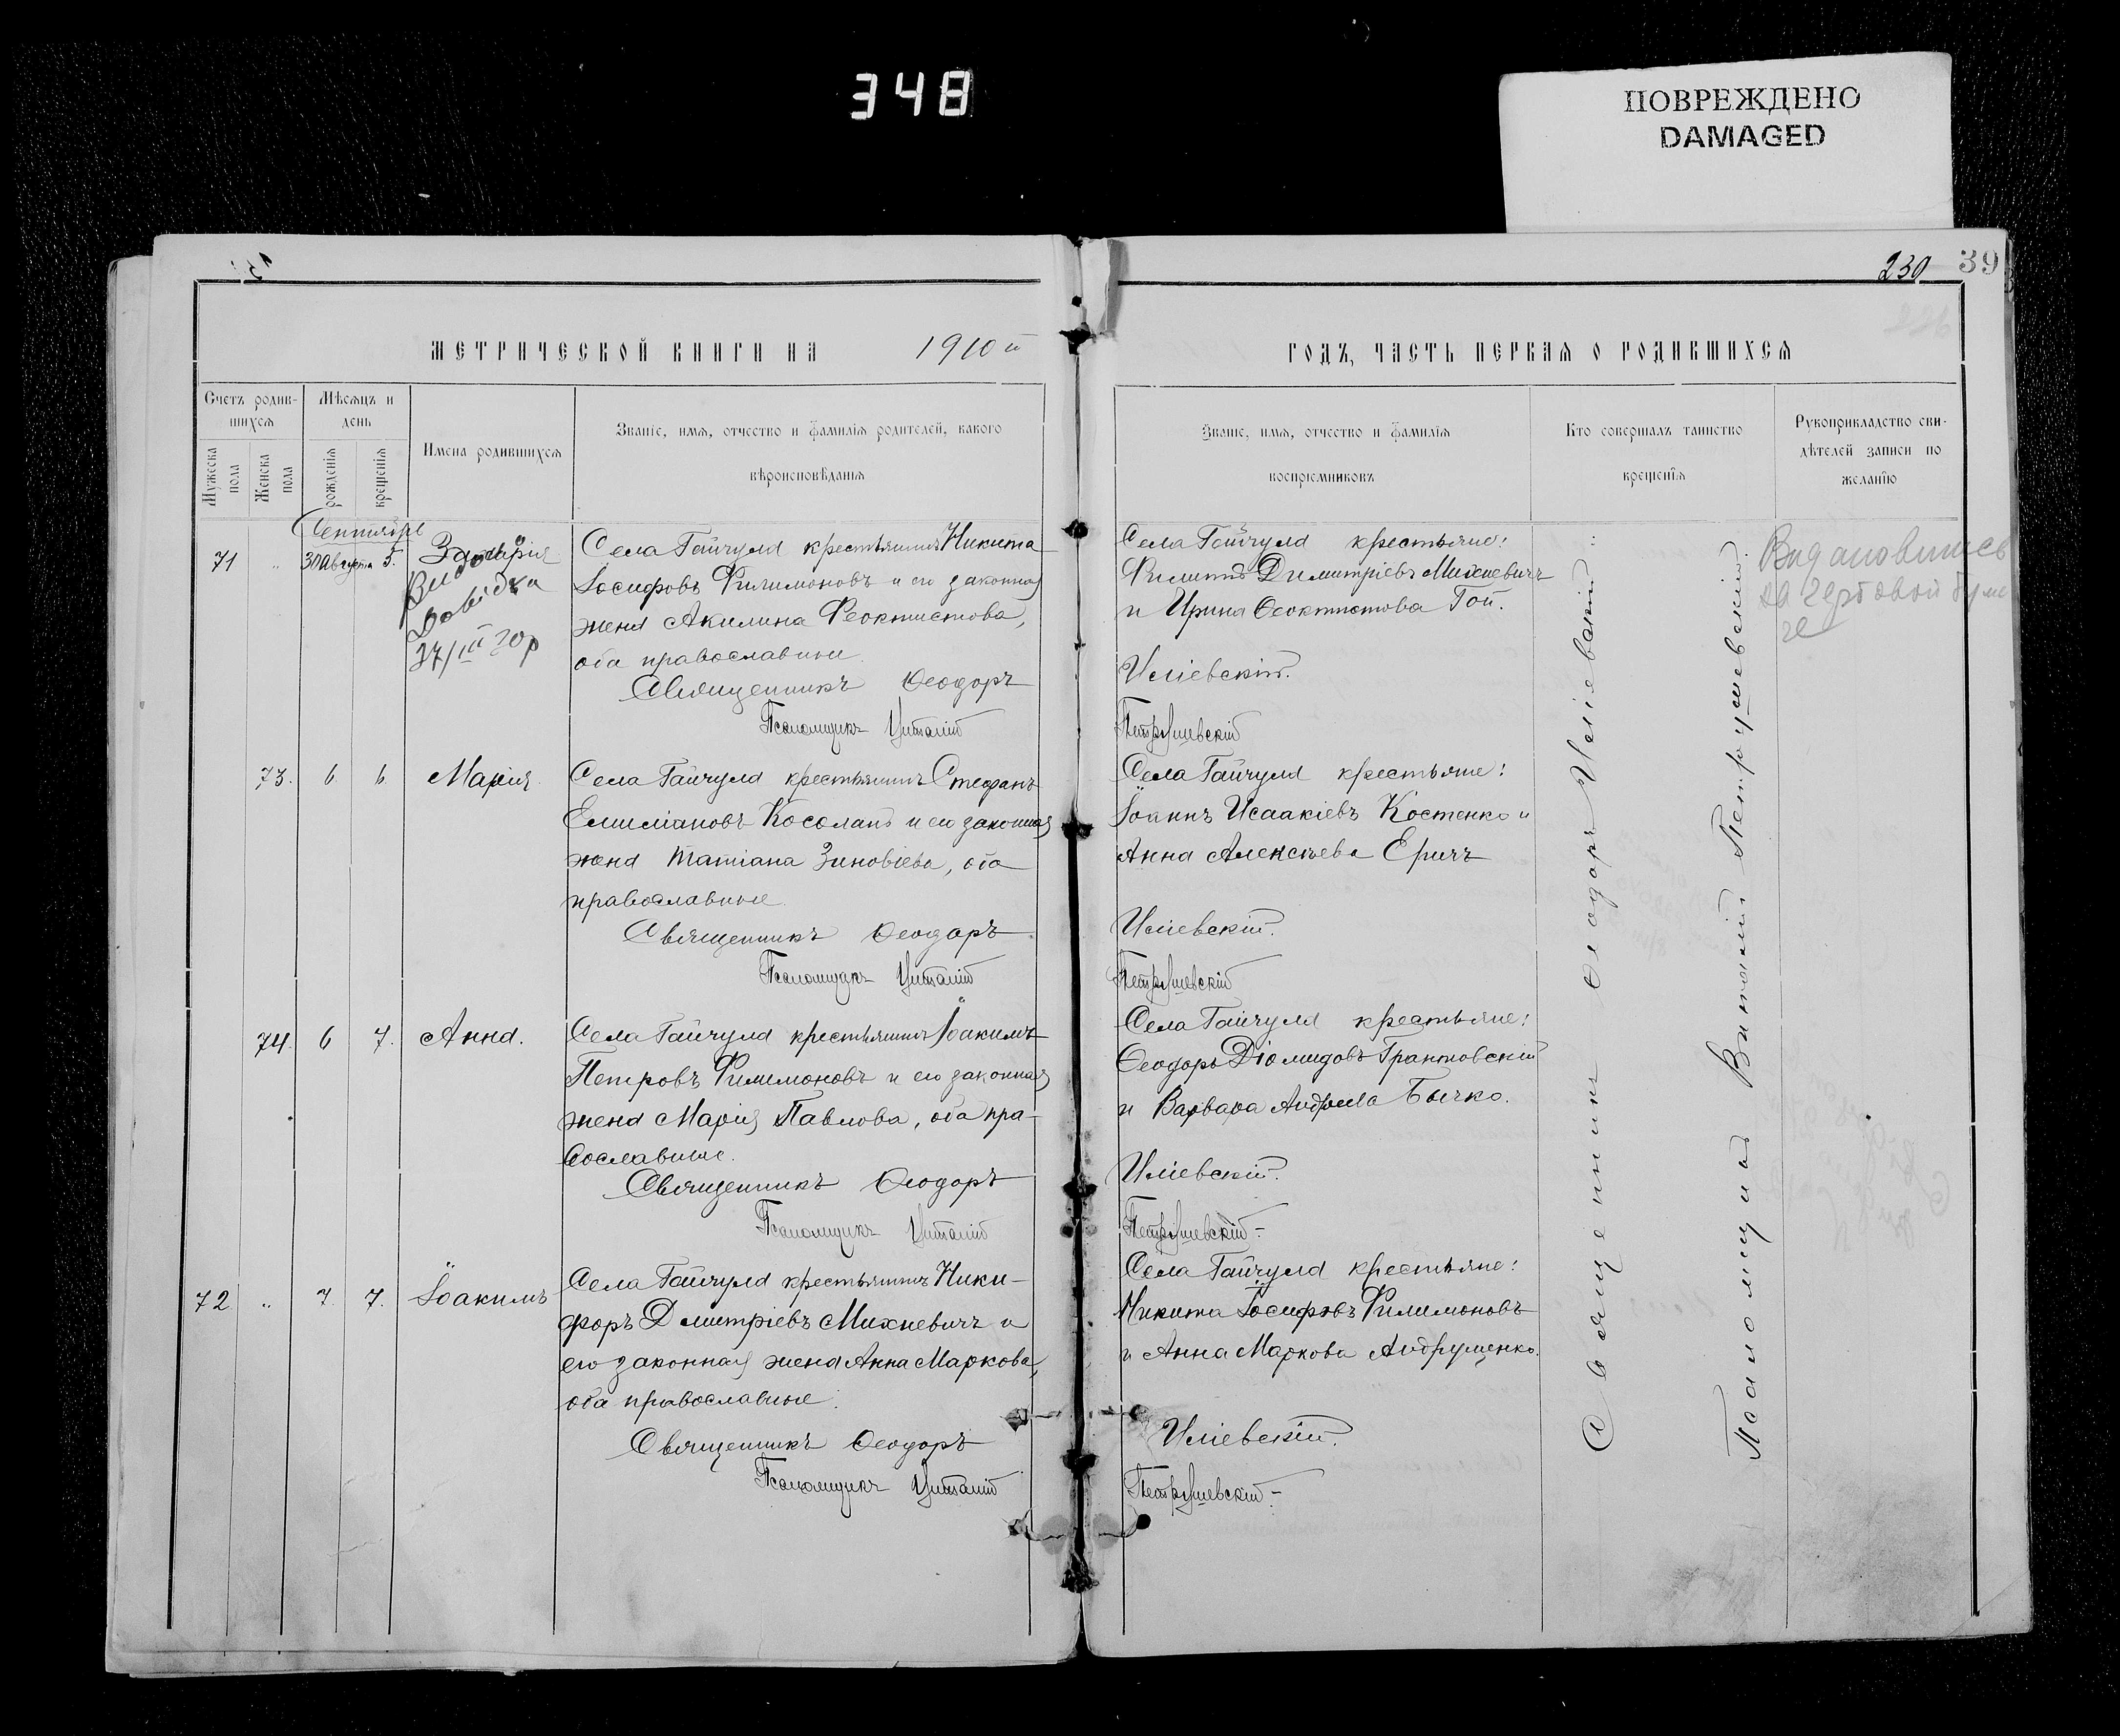 348
ПОВРЕЖДЕНО
DAMAGED
230 39
МЕТРИЧЕСКОЙ КНИГИ НА 1910й
ГОДЪ, ЧАСТЬ ПЕРВАЯ О РОДИВШИХСЯ
Счетъ родив-
шихся
Мужеска пола
Женска пола
Мѣсяцъ и
день
рожденія
крещенія
Имена родившихся
Званіе, имя, отчество и фамилія родителей, какого
вѣроисповѣданія
Званіе, имя, отчество и фамилія
воспріемниковъ
Кто совершалъ таинство
крещенія
Рукоприкладство сви-
дѣтелей записи по
желанію
Сентябрь
71 " 30 Августа 5. Захарія
Видана
Довідка
27/III 20р
Села Гайчула крестьянинъ Никита
Іосифовъ Филимоновъ и его законная
жена Акилина Феоктистова,
оба православные
Священникъ Ѳеодоръ
Псаломщикъ Виталій
Села Гайчула крестьяне:
Филиппъ Димитріевъ Михневичъ
и Ирина Ѳеоктистова Гой.
Иліевскій.
Петрушевскій
73. 6. 6. Марія.
Села Гайчула крестьянинъ Стефанъ
Емиліановъ Косолапъ и его законная
жена Татіана Зиновіева, оба
православные.
Священникъ Ѳеодоръ
Псаломщикъ Виталій
Села Гайчула крестьяне:
Іоаннъ Исаакіевъ Костенко и
Анна Алексѣева Еричъ
Иліевскій.
Петрушевскій
74. 6 7. Анна.
Села Гайчула крестьянинъ Іоакимъ
Петровъ Филимоновъ и его законная
жена Марія Павлова, оба пра-
вославные.
Священникъ Ѳеодоръ
Псаломщикъ Виталій
Села Гайчула крестьяне:
Ѳеодоръ Діомидовъ Грантовскій
и Варвара Андреева Бычко.
Иліевскій.
Петрушевскій-
72 " 7. 7. Іоакимъ
Села Гайчула крестьянинъ Ники-
форъ Димитріевъ Михневичъ и
его законная жена Анна Маркова,
оба православные.
Священникъ Ѳеодоръ
Псаломщикъ Виталій
Села Гайчула крестьяне:
Никита Іосифовъ Филимоновъ
и Анна Маркова Андрущенко.
Иліевскій.
Петрушевскій-
Священникъ Ѳеодоръ Иліевскій.
Псаломщикъ Виталій Петрушевскій.